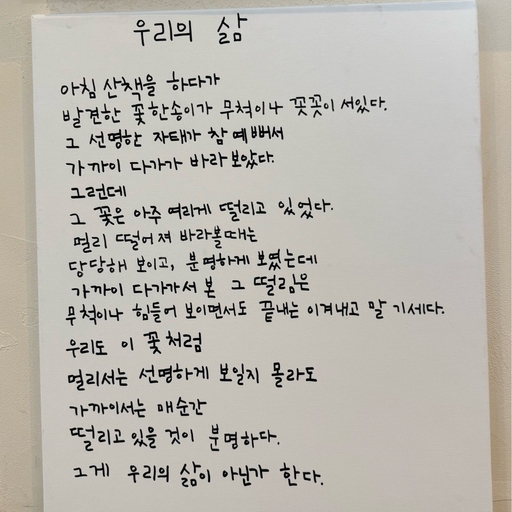 우리의 삶
아침 산책을 하다가
발견한 꽃 한송이가 무척이나 꼿꼿이 서있다.
그 선명한 자태가 참 예뻐서
가까이 다가가 바라보았다.
그런데
그 꽃은 아주 여리게 떨리고 있었다.
멀리 떨어져 바라볼때는
당당해 보이고, 분명하게 보였는데
가까이 다가가서 본 그 떨림은
무척이나 힘들어 보이면서도 끝내는 이겨내고 말 기세다.
우리도 이 꽃처럼
멀리서는 선명하게 보일지 몰라도
가까이서는 매순간
떨리고 있을 것이 분명하다.
그게 우리의 삶이 아닌가 한다.